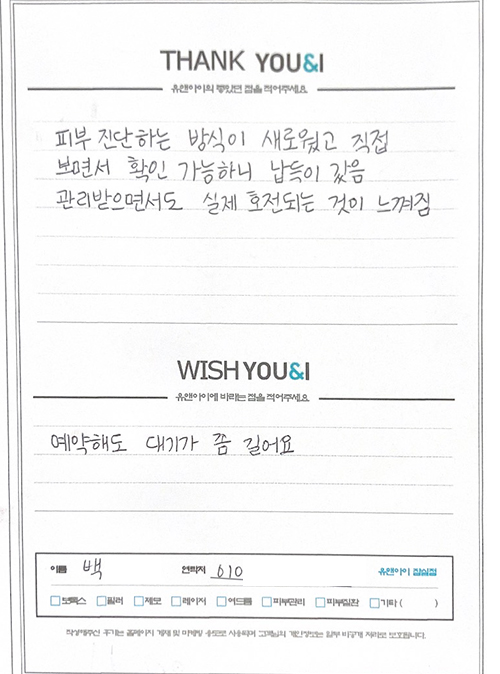 THANK YOU&I
유앤아이의 좋았던 점을 적어주세요.
피부 진단하는 방식이 새로웠고 직접
보면서 확인 가능하니 납득이 갔음
관리받으면서도 실제 호전되는 것이 느껴짐
WISH YOU&I
유앤아이에 바라는 점을 적어주세요.
예약해도 대기가 쫌 길어요
이름 백 연락처 010 유앤아이 잠실점
보톡스 필러 제모 레이저 여드름 피부관리 피부질환 기타 ( )
작성해주신 후기는 홈페이지 게재 및 마케팅 용도로 사용되며 고객님의 개인정보는 일부 비공개 처리로 보호됩니다.